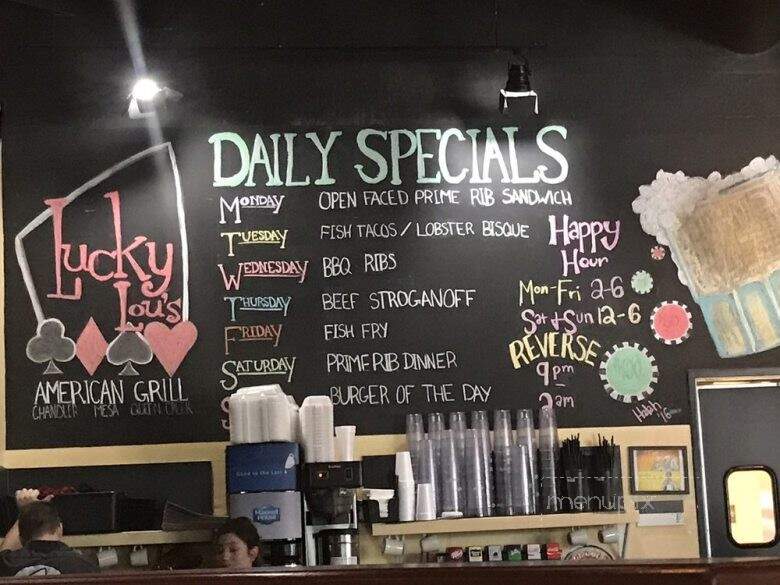 DAILY SPECIALS
MONDAY OPEN FACED PRIME RIB SANDWICH
TUESDAY FISH TACOS / LOBSTER BISQUE
WEDNESDAY BBQ RIBS
THURSDAY BEEF STROGANOFF
FRIDAY FISH FRY
SATURDAY PRIME RIB DINNER
S BURGER OF THE DAY
Happy
Hour
Mon-Fri 2-6
Sat & Sun 12-6
REVERSE
9pm
2am
Lucky
Lou's
AMERICAN GRILL
CHANDLER MESA QUEEN CREEK
Good to the Last
Maxwell
House
menupix